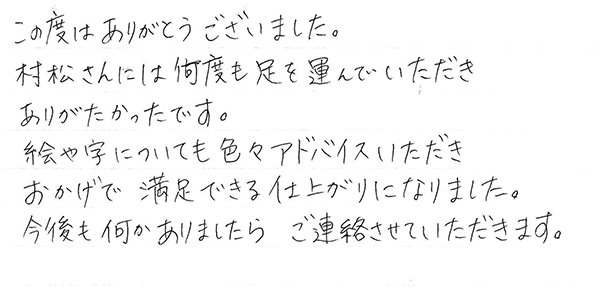 この度はありがとうございました。
村松さんには何度も足を運んでいただき
ありがたかったです。
絵や字についても色々アドバイスいただき
おかげで 満足できる仕上がりになりました。
今後も何かありましたら ご連絡させていただきます。